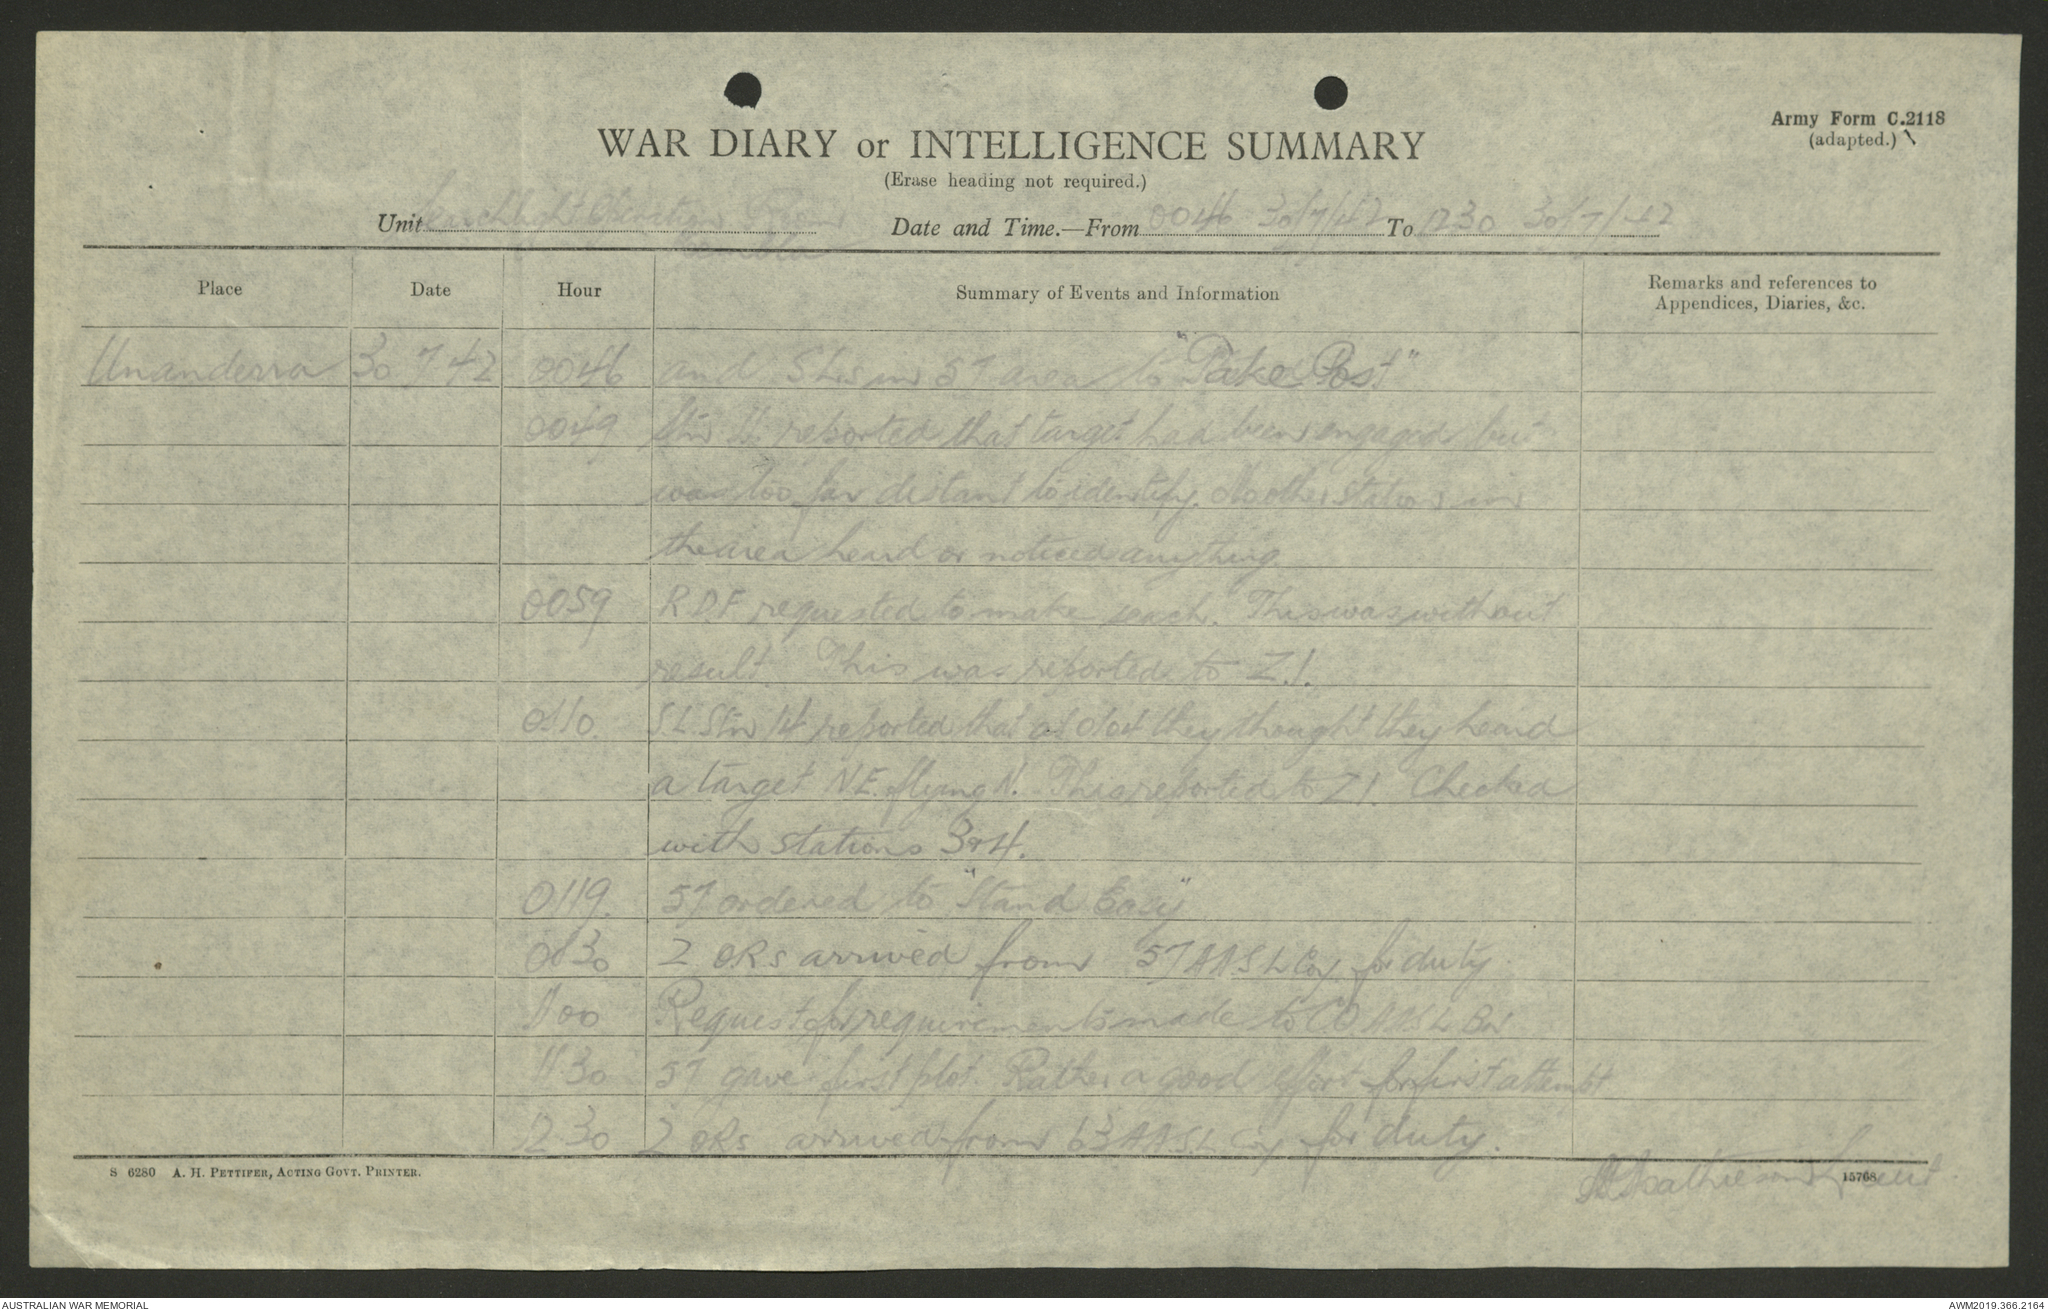 Army Form C.2118
(adapted.)
WAR DIARY or INTELLIGENCE SUMMARY
(Erase heading not required.)
Unit Searchlight Operations Room
Kembla
Date and Time.—From 0046 30/7/42 To 1230 30/7/42
Place Date Hour Summary of Events and Information Remarks and references to
Appendices, Diaries, &c.
Unanderra 30 7 42 0046 and SLs in 57 area to "Take Post"
0049 Stn reported that target had been engaged but
was too far distant to identify. No other station in
the area heard or noticed anything
0059 R.D.F. requested to make seach. This was without
result. This was reported to Z.1.
0110. S.L. Stn 14 reported that at they thought they heard
a target N.E. flying N. This reported to Z1. Checked
with stations 3 & 4.
0119. 57 ordered to "Stand Easy"
0130 2 ORs arrived from 57 AASL Coy for duty.
1100 Request for requirements made to CO AASL Bn
1130 57 gave first plot. Rather a good effort for first attempt
1230 2 ORs arrived from 63 AASL Coy for duty.
S 6280 A. H. Pettifer, Acting Govt. Printer.
15768
Mathieson Lieut
AUSTRALIAN WAR MEMORIAL
AWM2019.366.2164